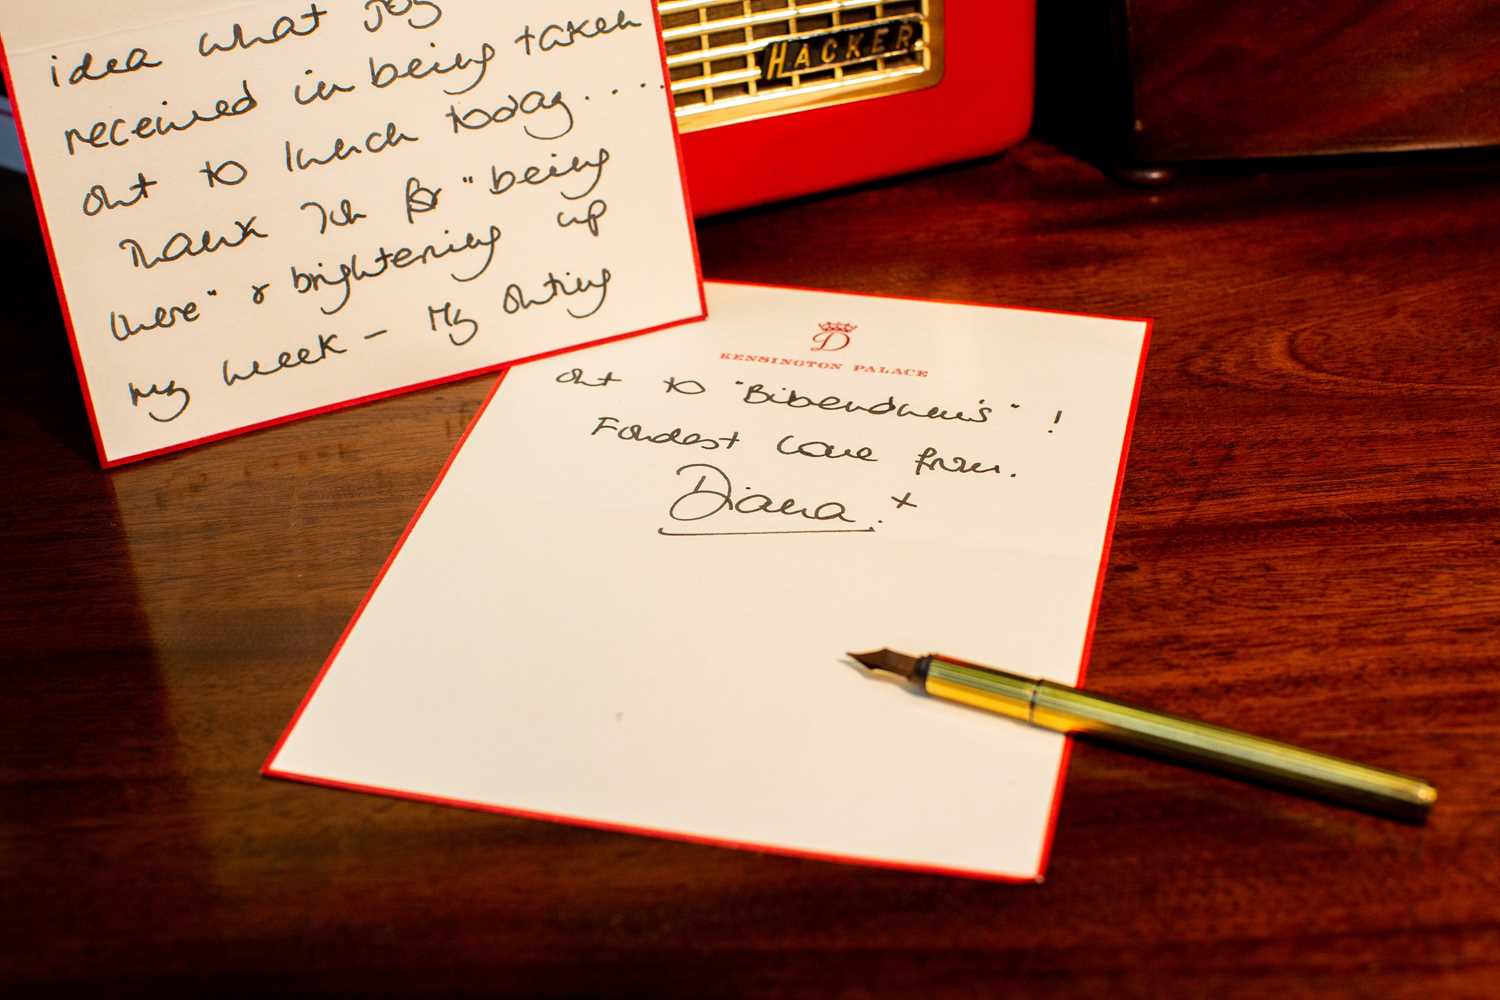 idea what joy
received in being taken
out to lunch today....
Thank You for "being
there" & brightening up
my week – My outing
HACKER
D
KENSINGTON PALACE
out to "Bibendum's" !
Fondest love from.
Diana. x